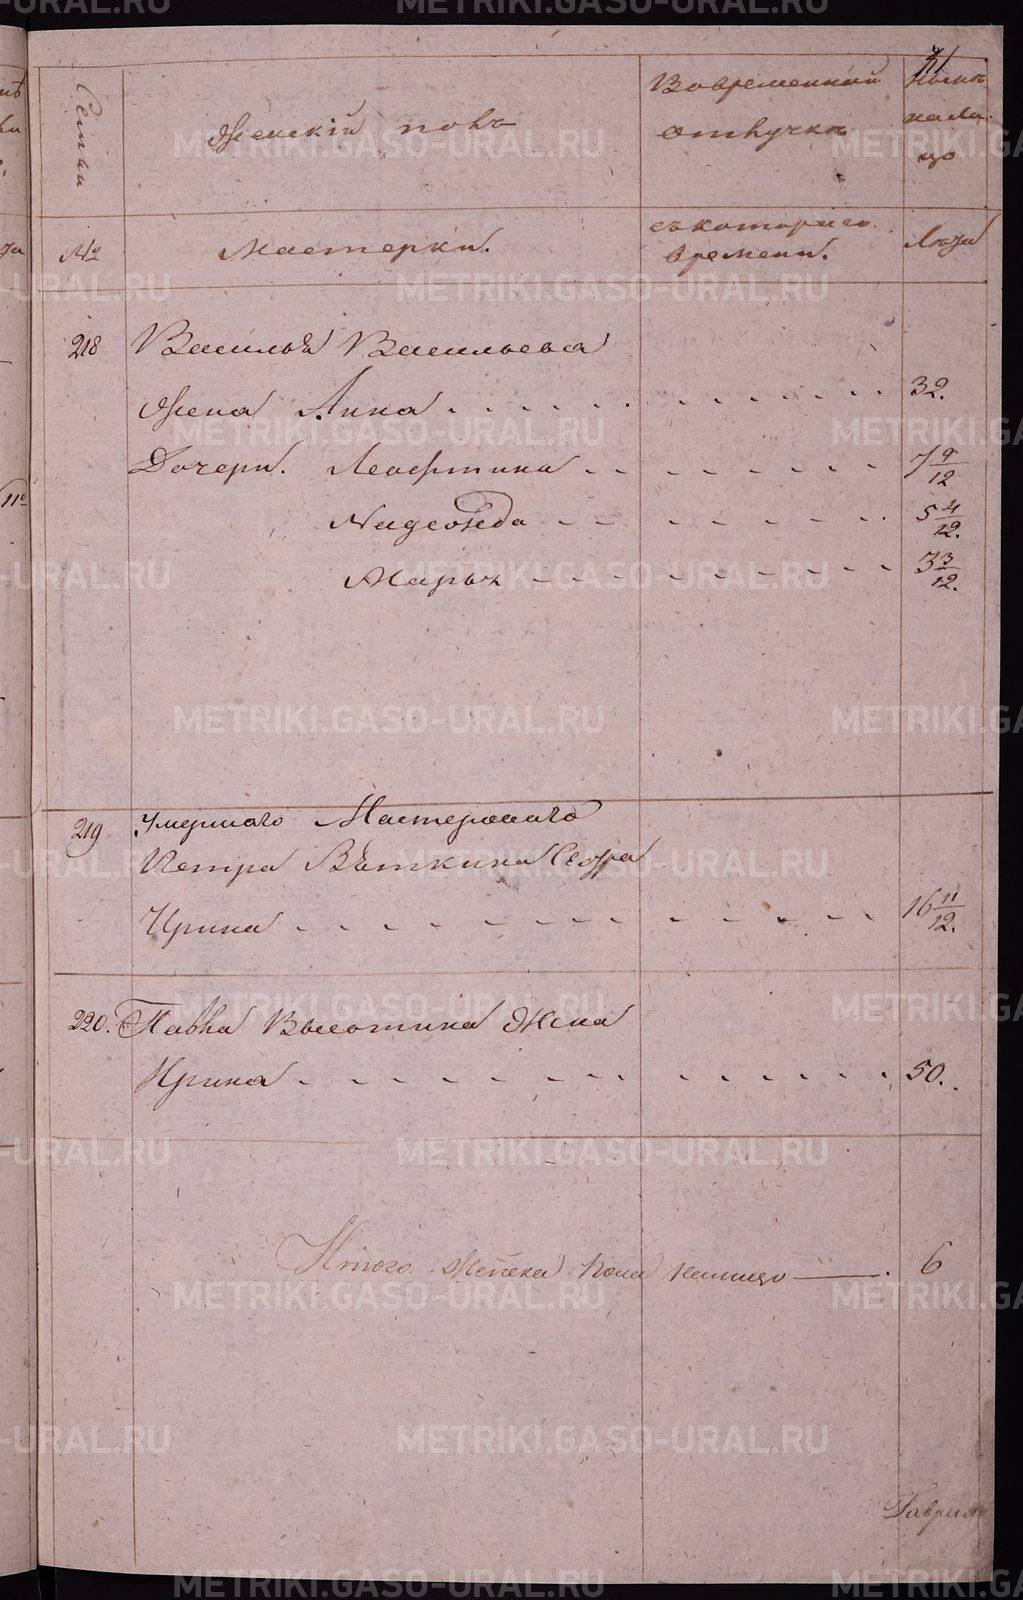 71
Семьи
Женскій полъ
Во временной
отлучкѣ
Нынѣ
на ли
цо
№
Мастерки.
съ котораго
времени.
Лѣта
218 Василья Васильева
Жена Анна 32.
Дочери. Леофтина 7 9/12
Надежда 5 4/12.
Марья 3 3/12.
219 Умершаго Мастероваго
Петра Вяткина Сестра
Ирина 16 11/12.
220. Павла Высотина Жена
Ирина 50.
Итого женска пола налицо 6
Гаврило
METRIKI.GASO-URAL.RU